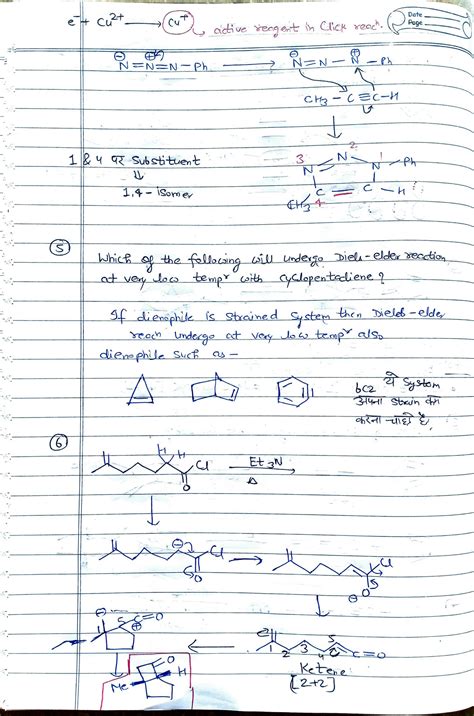 e⁻ + Cu²⁺ ⟶ Cu⁺ active reagent in Click reacⁿ.
Date
Page
N=N=N-Ph ⟶ N=N-N-Ph
CH₃-C≡C-H
1 & 4 पर Substituent
⇓
1,4-isomer
3 N N 2 N 1 -Ph
CH₃ C 4 = C - H
⑤ Which of the following will undergo Diels-elder reaction
at very low tempʳ with cyclopentadiene?
If dienophile is strained system then Dields-elder
reacn undergo at very low tempʳ also
dienophile such as -
bcz ये System
अपना strain कम
करना चाहते है
⑥ H H Cl O Et₃N Δ
⊖ Cl O ⟶ Cl O⊖
1 2 3 4 5 C=O
Ketene
[2+2]
⊖ 1 5 C=O ⊕
Me O H